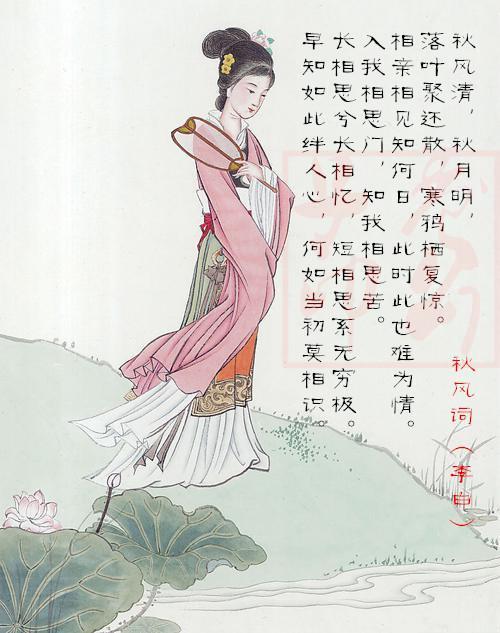 秋风清，秋月明，
落叶聚还散，寒鸦栖复惊。
相亲相见知何日，此时此也难为情。
入我相思门，知我相思苦。
长相思兮长相忆，短相思系无穷极。
早知如此绊人心，何如当初莫相识。
秋风词（李申）